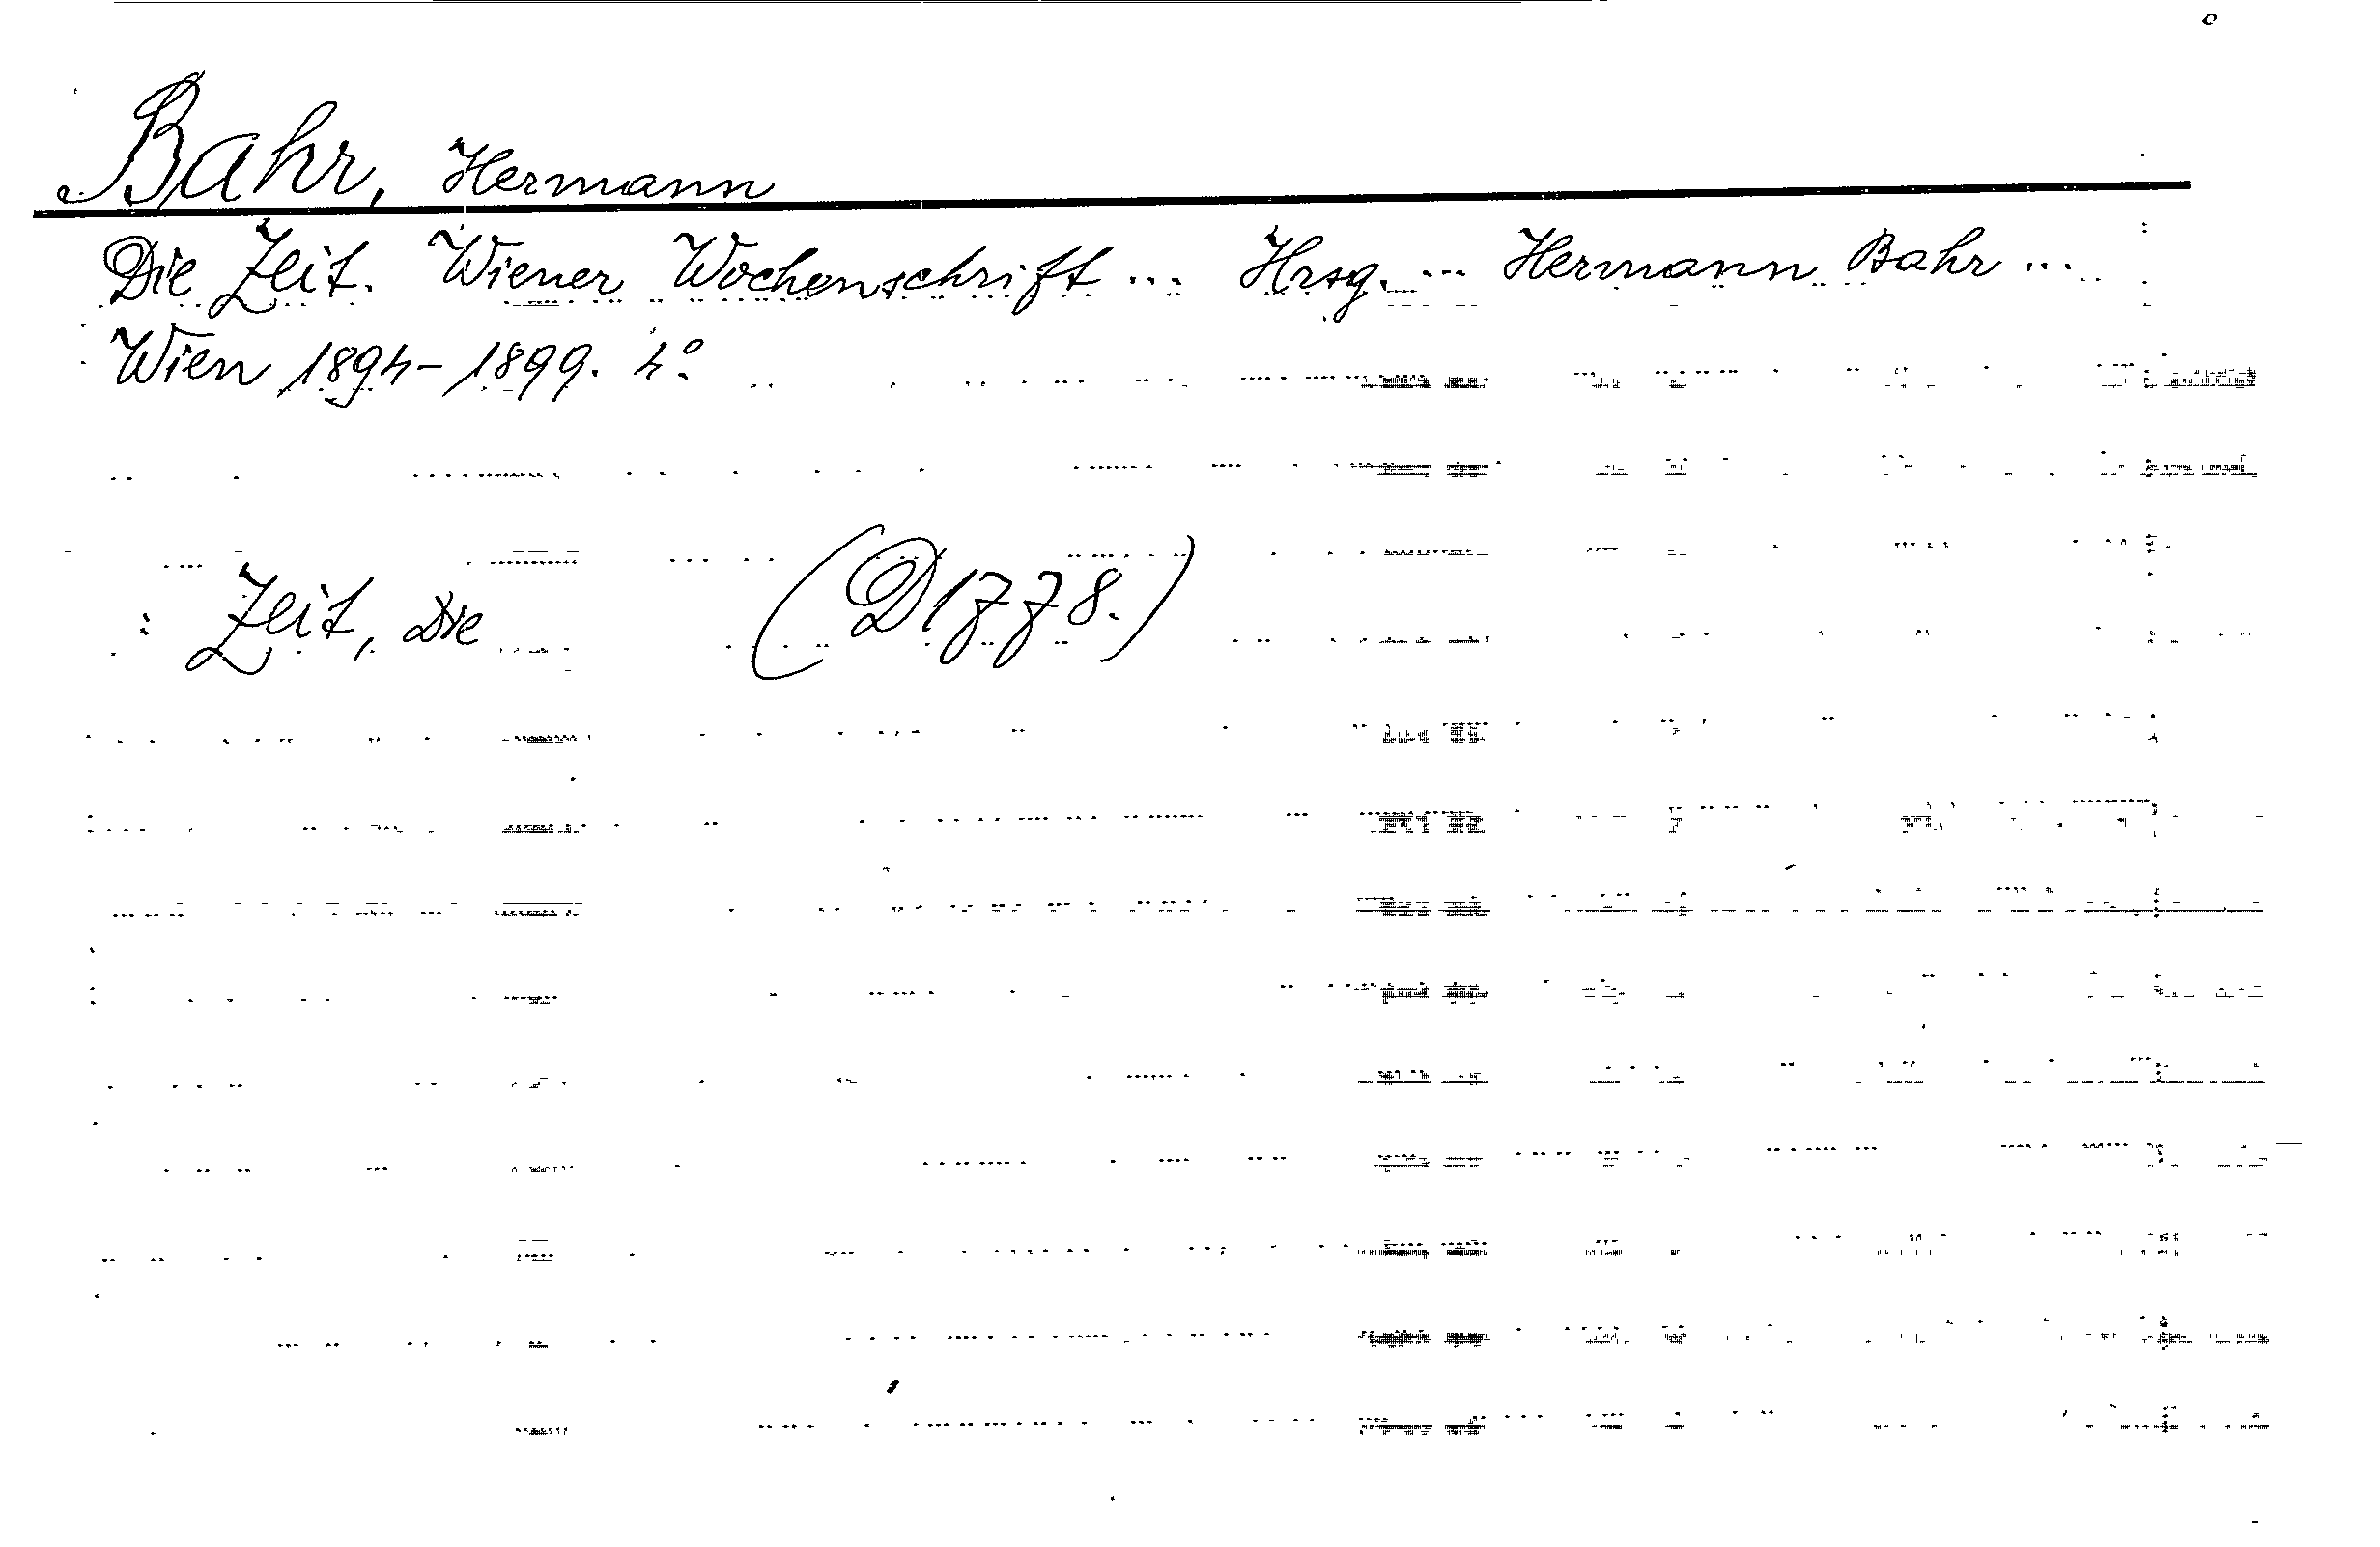 Bahr, Hermann
Die Zeit. Wiener Wochenschrift ... Hrsg. ... Hermann Bahr ...
Wien 1894-1899. 4°.
: Zeit, Die (D1778.)